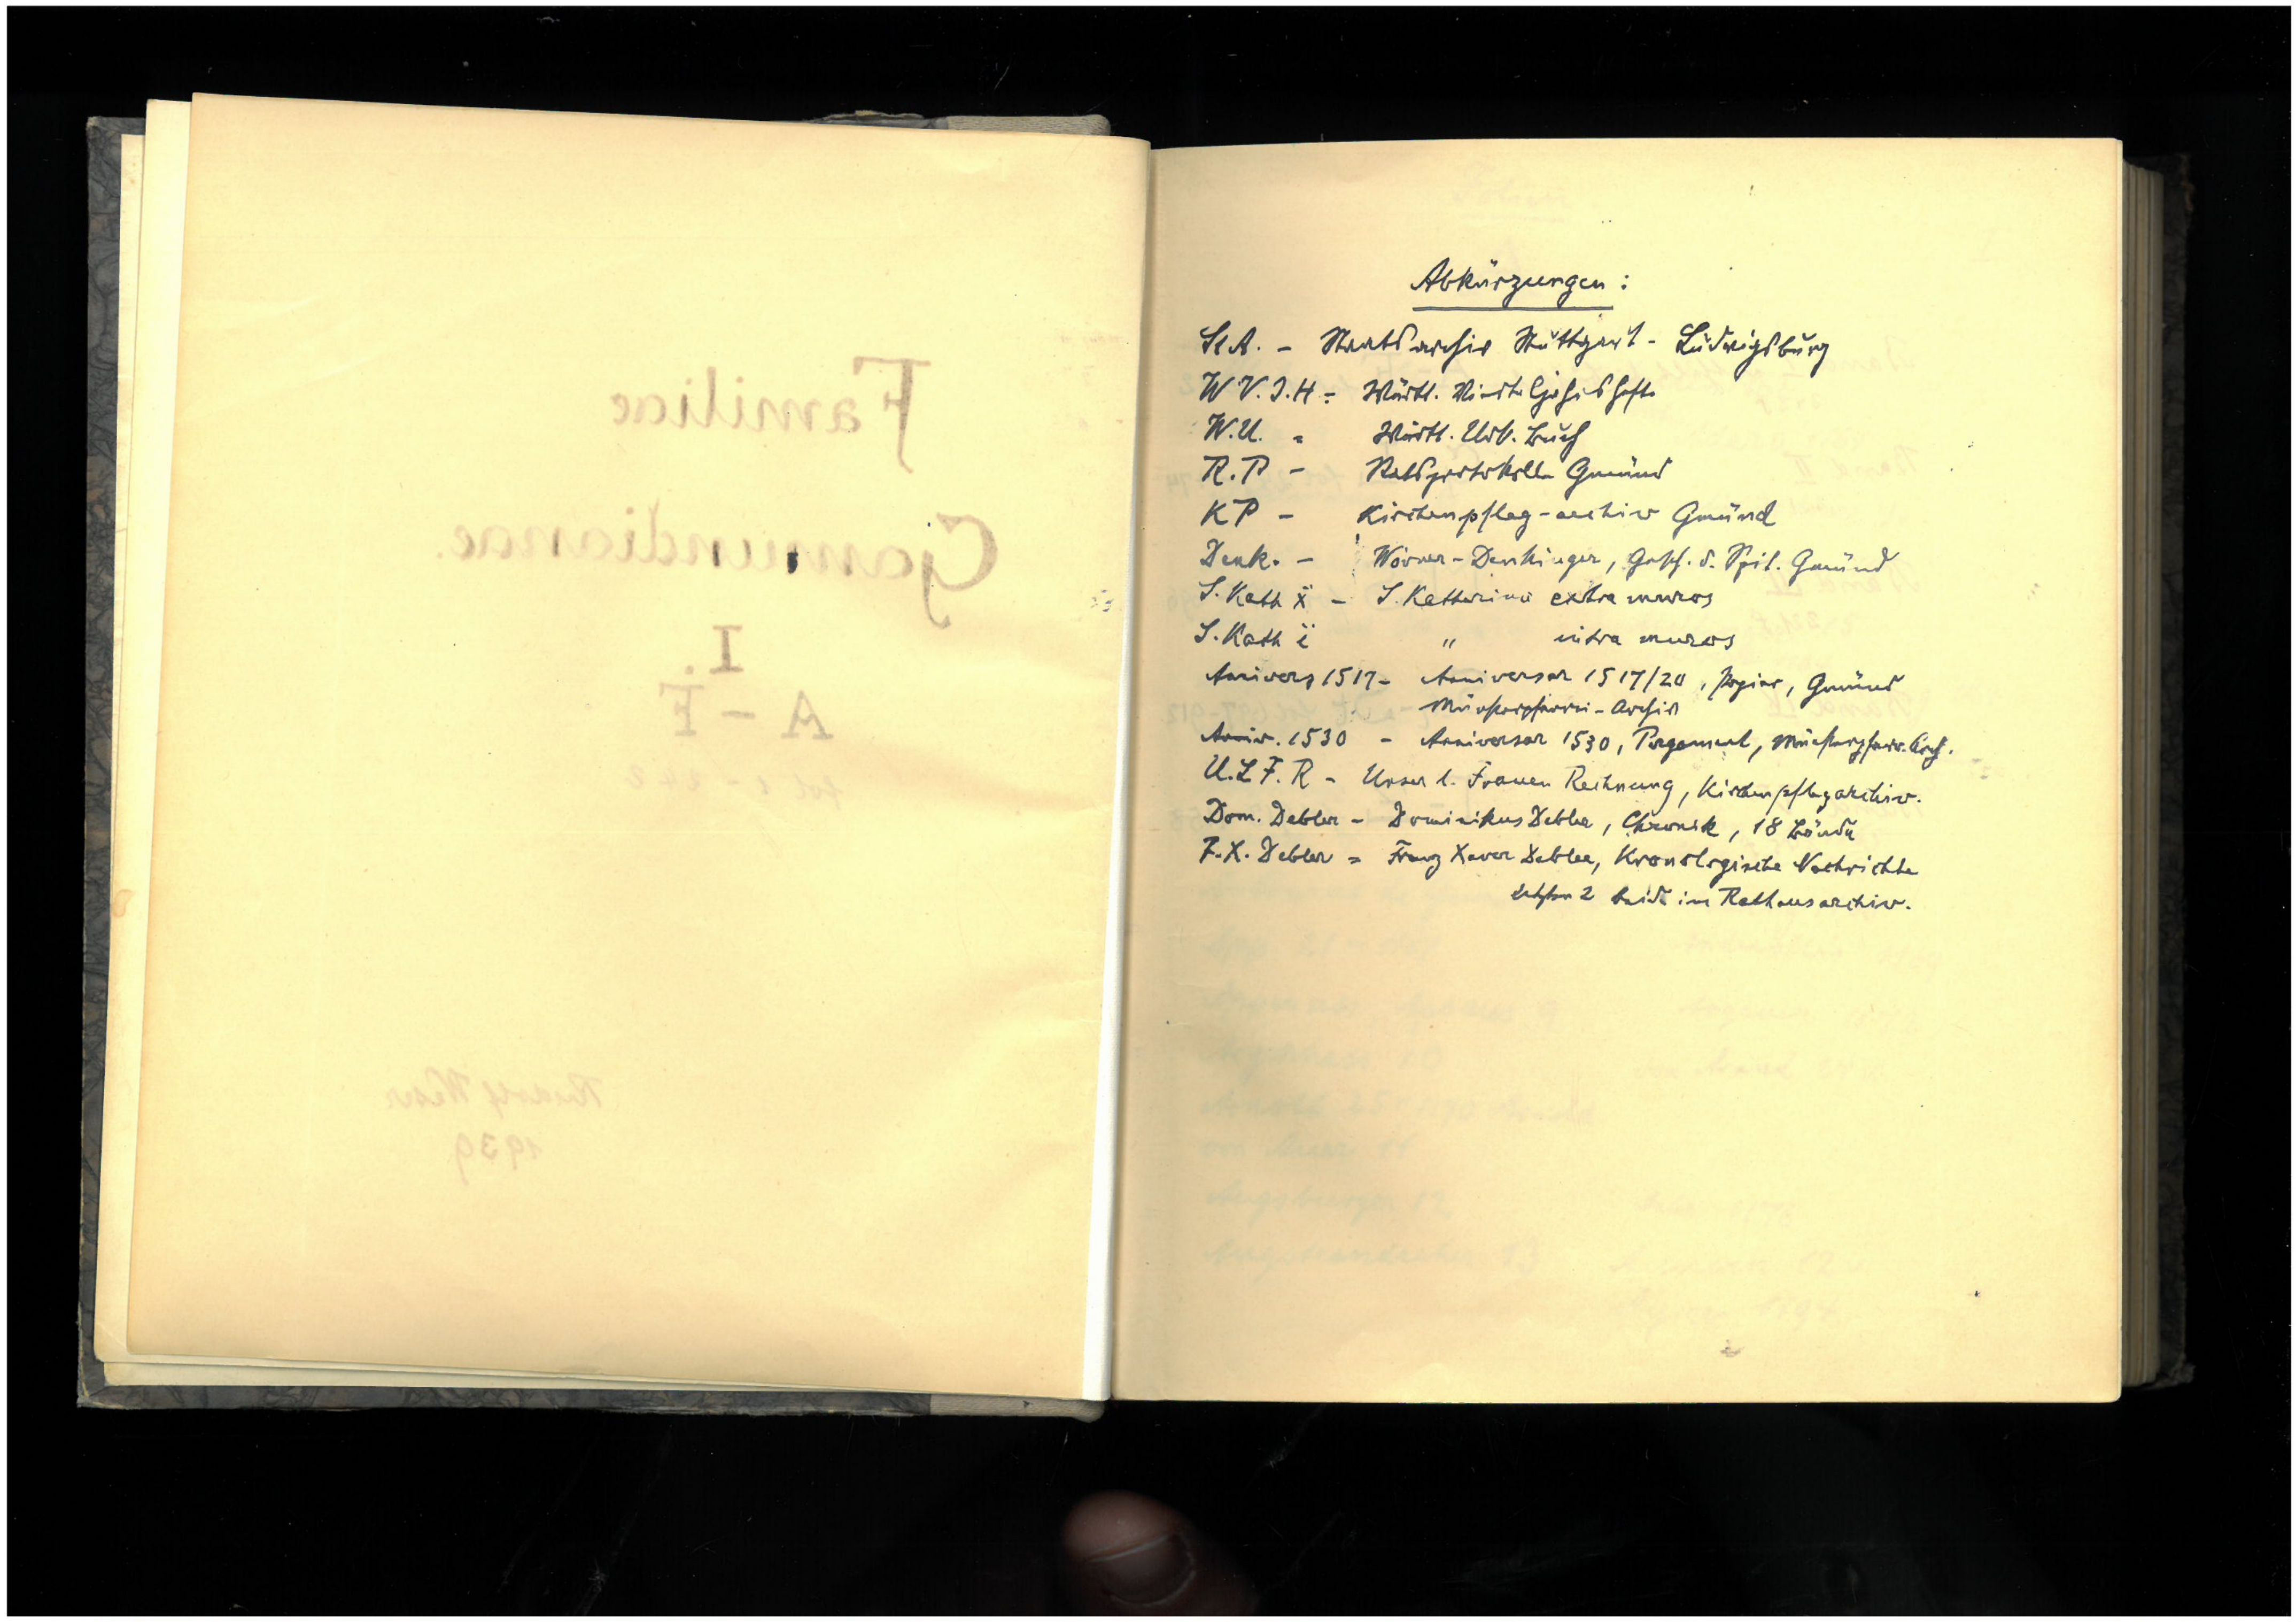 Familiae
Gamundianae.
I.
A – F
fol 1 – 242
Rudolf Weser
1939
Abkürzungen:
St A. – Staatsarchiv Stuttgart - Ludwigsburg
W V.J.H = Württ. Vierteljahrshefte
W.U. = Württ. Urk. Buch
R.P – Ratsprotokolle Gmünd
KP – Kirchenpfleg-archiv Gmünd
Denk. – Wörner-Denkinger, Gesch. d. Spit. Gmünd
S. Kath ẍ – S. Katharina extra muros
S. Kath ï " intra muros
Anivers 1517 – Aniversar 1517/20, Papier, Gmünd
Münsterpfarrei-Archiv
Aniv. 1530 – Aniversar 1530, Pergament, Münsterpfarr. Arch.
U.L F. R – Unser l. Frauen Rechnung, Kirchenpflegarchiv.
Dom. Debler – Dominikus Debler, Chronik, 18 Bände
F.X. Debler = Franz Xaver Debler, Kronologische Nachrichte
2 beide im Rathausarchiv.